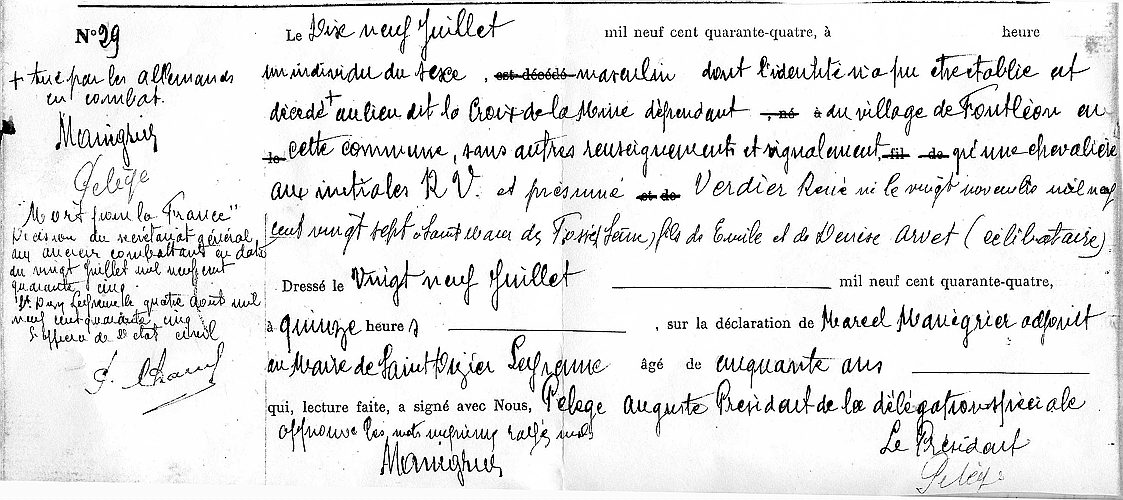 N° 29
+ tué par les allemands
en combat.
Manégrier
Pelège
"Mort pour la France"
Décision du secrétariat général
aux anciens combattants en date
du vingt Juillet mil neuf cent
quarante cinq
St Dizier Leyrenne le quatre août mil
neuf cent quarante cinq
L'officier de l'état civil
Le Dix neuf Juillet mil neuf cent quarante-quatre, à heure
un individu du sexe, est décédé masculin dont l'identité n'a pu être établie est
décédé + au lieu dit la Croix de la Mine dépendant , né à du village de Fontléon en
le cette commune, sans autres renseignements et signalement, fil de qu'une chevalière
aux initiales R V. et présumé et de Verdier René né le vingt novembre mil neuf
cent vingt sept à Saint Maur des Fossés (Seine) fils de Emile et de Denise Arvet (célibataire)
Dressé le Vingt neuf Juillet mil neuf cent quarante-quatre,
à quinze heures , sur la déclaration de Marcel Manégrier adjoint
au Maire de Saint Dizier Leyrenne âgé de cinquante ans
qui, lecture faite, a signé avec Nous, Pelège Auguste Président de la délégation spéciale
approuvé les mots rayés nuls
Le Président
Manégrier
Pelège